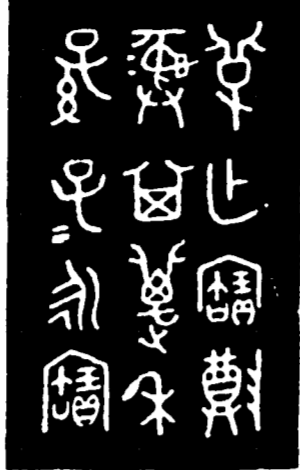 乍寶尊
彝其萬年
孫子=永寶